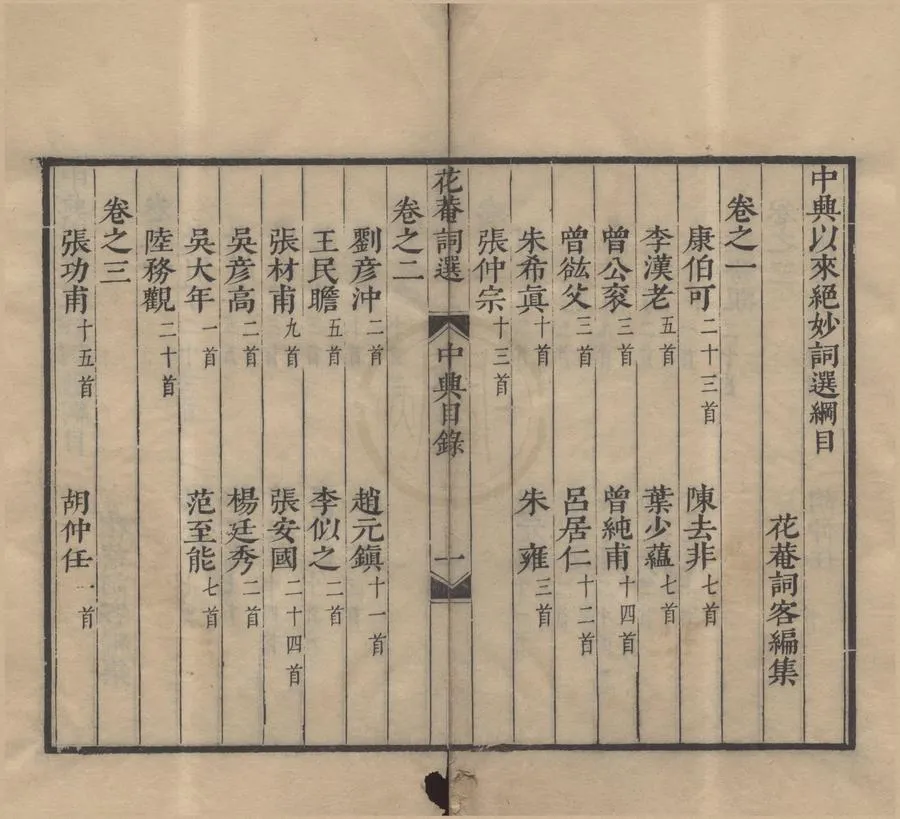 中興以來絕妙詞選綱目
花菴詞客編集
卷之一
康伯可二十三首 陳去非七首
李漢老五首 葉少蘊七首
曾公袞三首 曾純甫十四首
曾紘父三首 呂居仁十二首
朱希眞十首 朱雍三首
張仲宗十三首
花菴詞選 中興目錄 一
卷之二
劉彥沖二首 趙元鎭十一首
王民瞻五首 李似之二首
張材甫九首 張安國二十四首
吳彥高二首 楊廷秀二首
吳大年一首 范至能七首
陸務觀二十首
卷之三
張功甫十五首 胡仲任一首